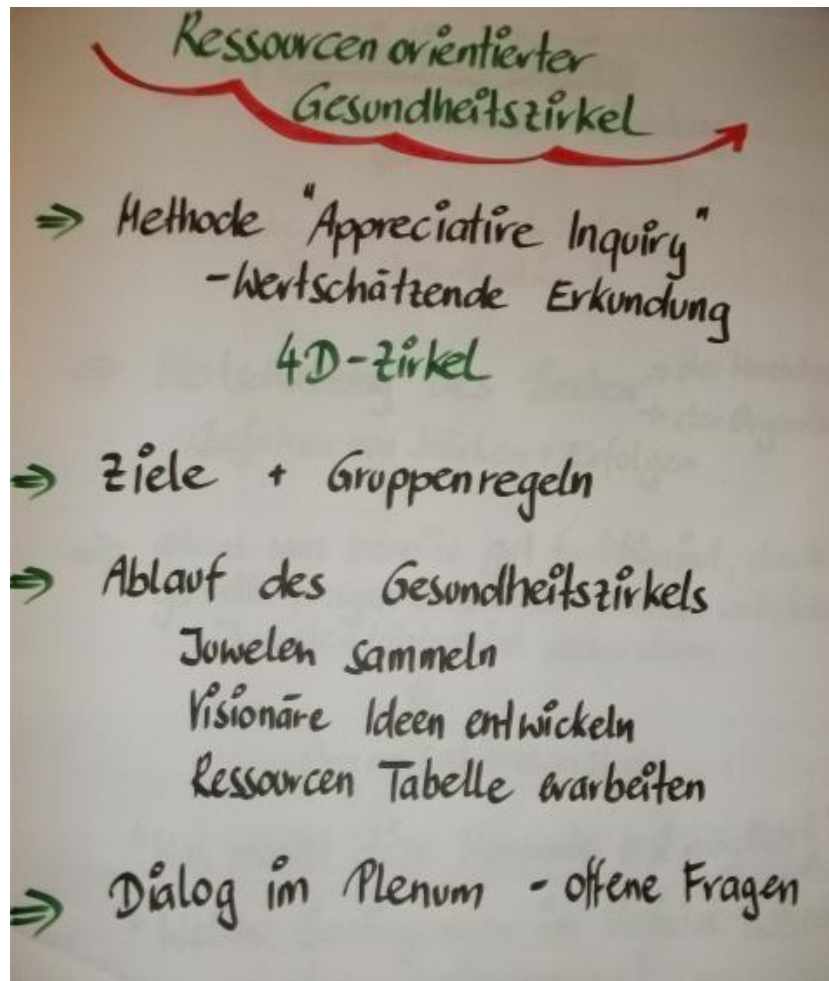 Ressourcen orientierter
Gesundheitszirkel
⇒ Methode "Appreciative Inquiry"
- Wertschätzende Erkundung
4D-Zirkel
⇒ Ziele + Gruppenregeln
⇒ Ablauf des Gesundheitszirkels
Juwelen sammeln
Visionäre Ideen entwickeln
Ressourcen Tabelle erarbeiten
⇒ Dialog im Plenum - offene Fragen